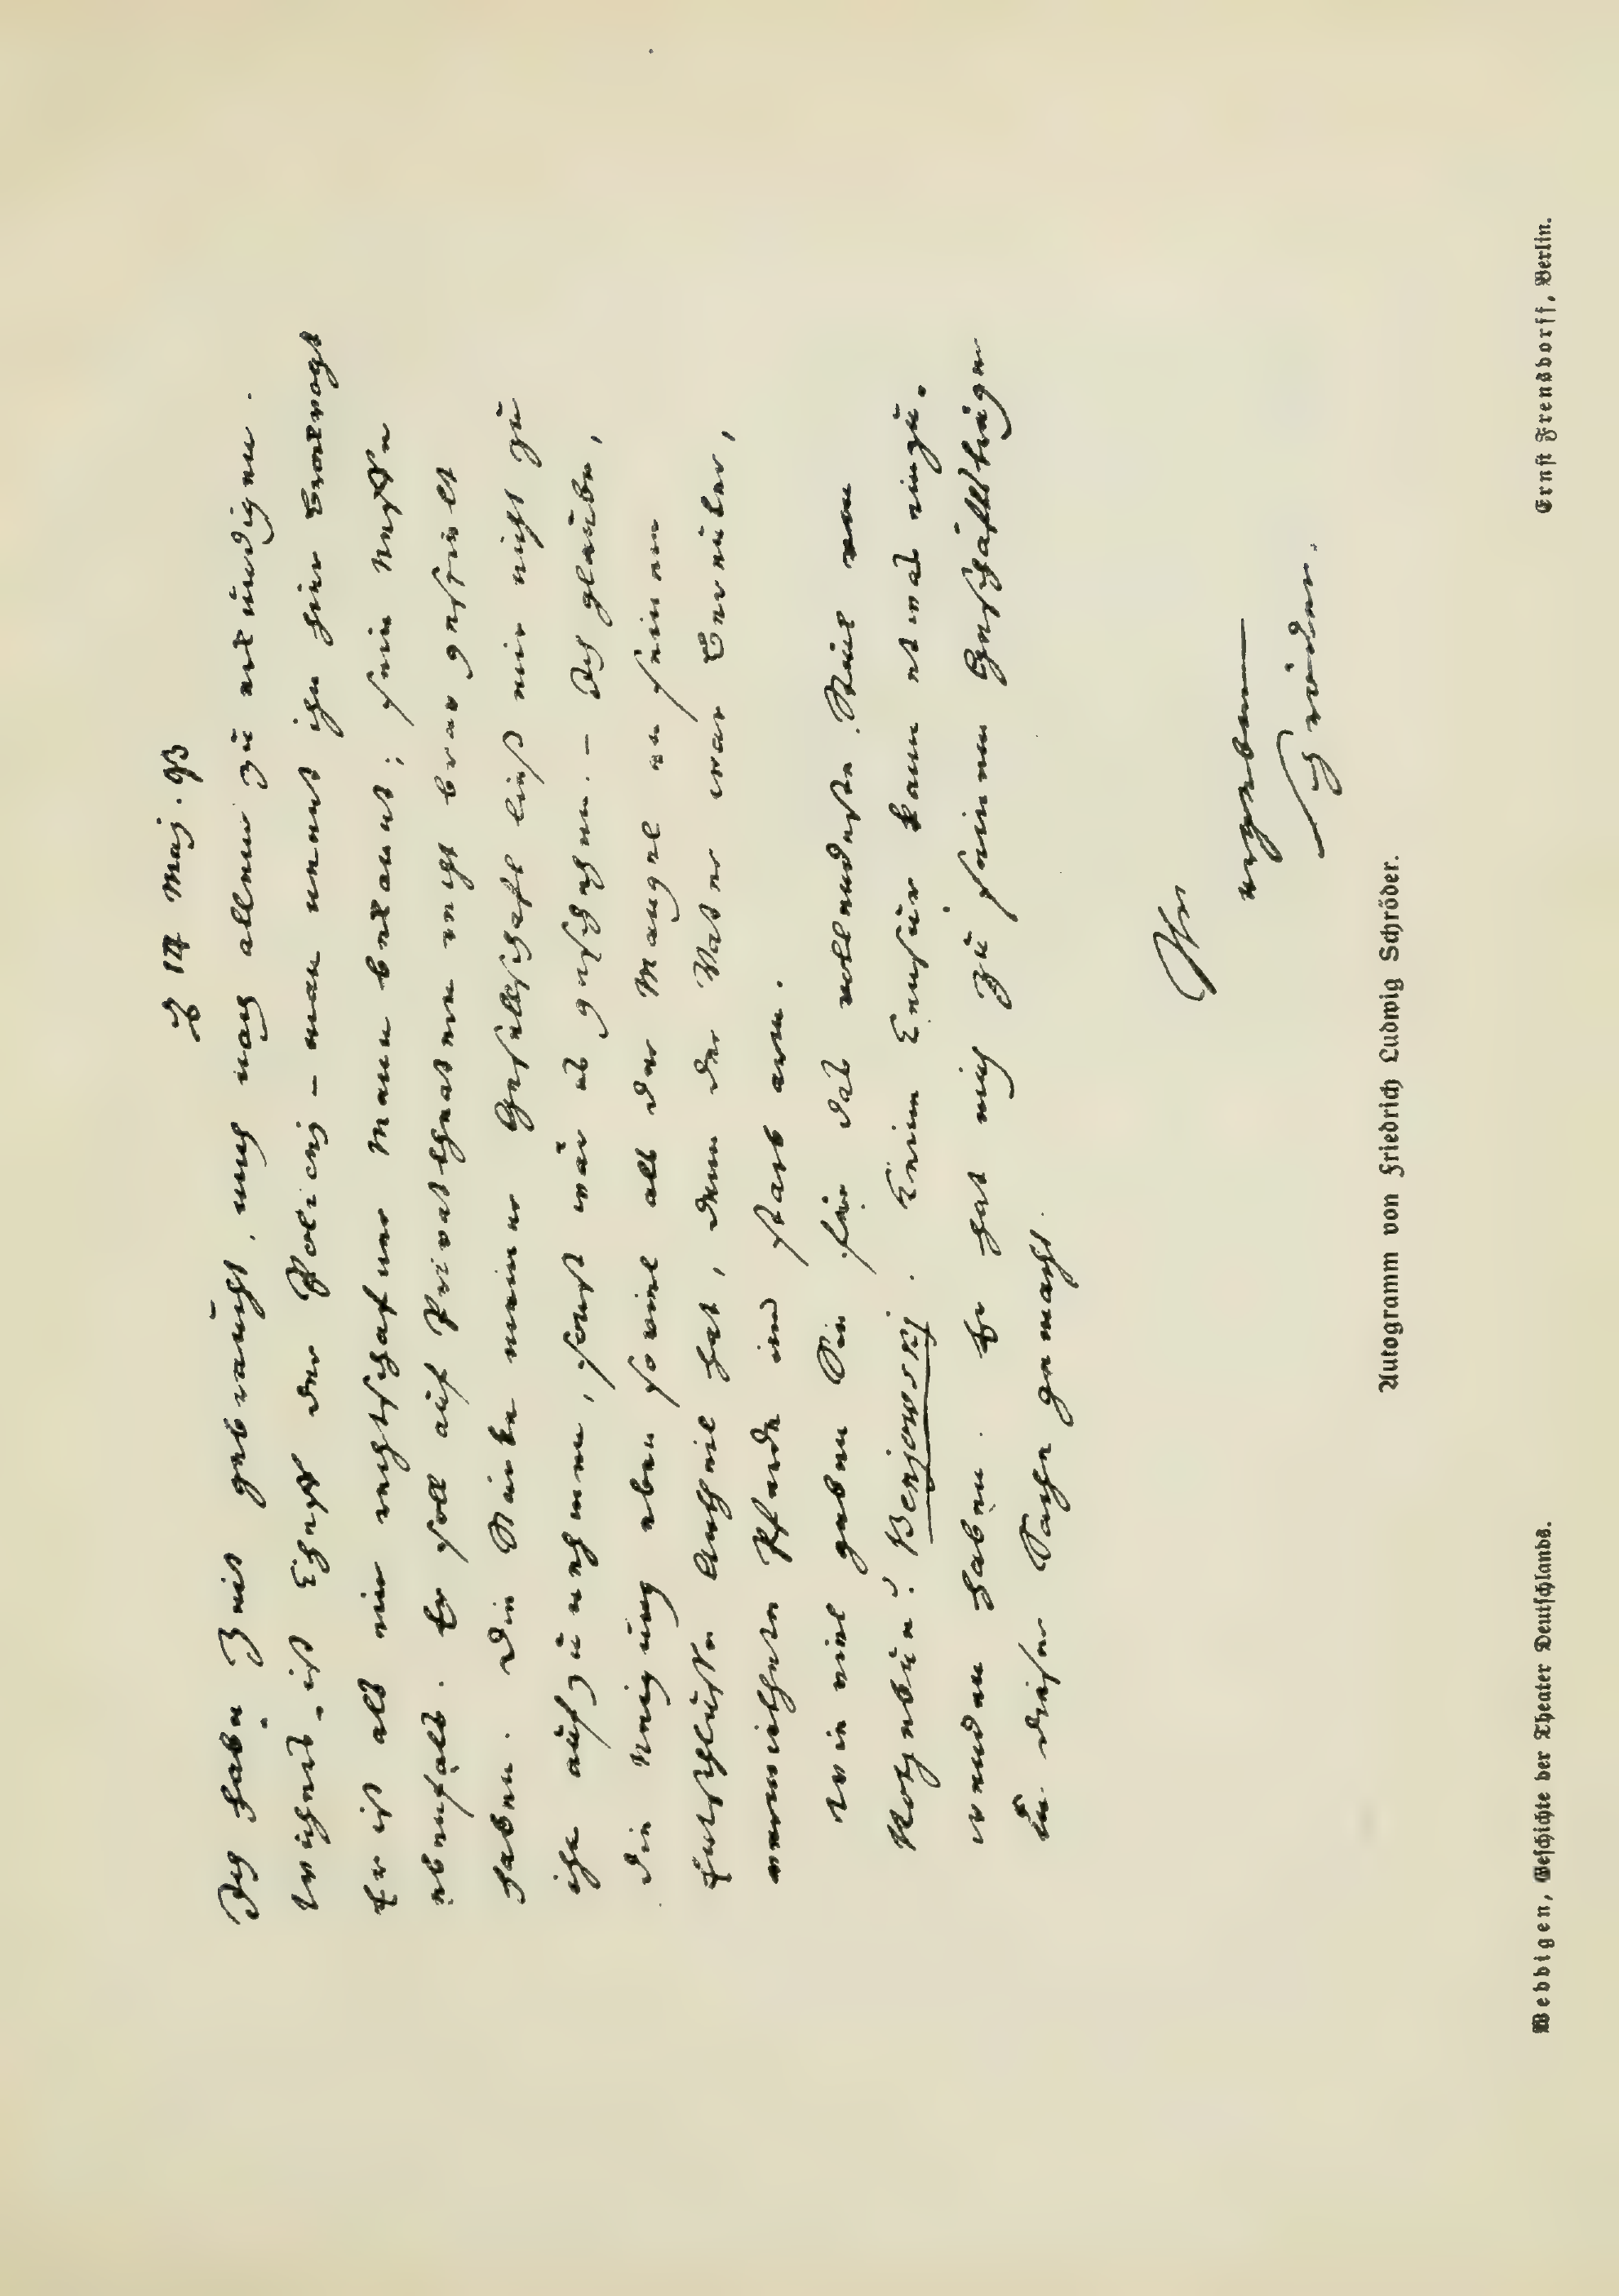 H 14 Maj. 93
Ich habe Zeit gebraucht, mich nach allem zu erkundigen.
ist Chef der Policey – man nennt ihn hier Vorvogt
Er ist als ein rechtschafner Mann bekannt; sein Neffe
ebenfals. Er soll auf Privattheatern recht brav gespielt
haben. Die Stärke meiner Gesellschaft ließ mir nicht zu
ihn aufzunehmen, sonst wär es geschehen. – Ich glaube,
die Neigung eben soviel als der Mangel an seinem
Entschlusse Antheil hat, denn der Vater war Verwalter,
verwitthete Pferde und starb arm.
Wie viel geben Sie für das vollendeste Stück von
Kotzebue? Benjowsky. Keine Censur kann etwas einzu-
wenden haben. Er hat mich zu seinem Geschäftträger
in dieser Sache gemacht.
Ihr
ergebner
Schröder.
Autogramm von Friedrich Ludwig Schröder.
Weddigen, Geschichte der Theater Deutschlands.
Ernst Frensdorff, Berlin.